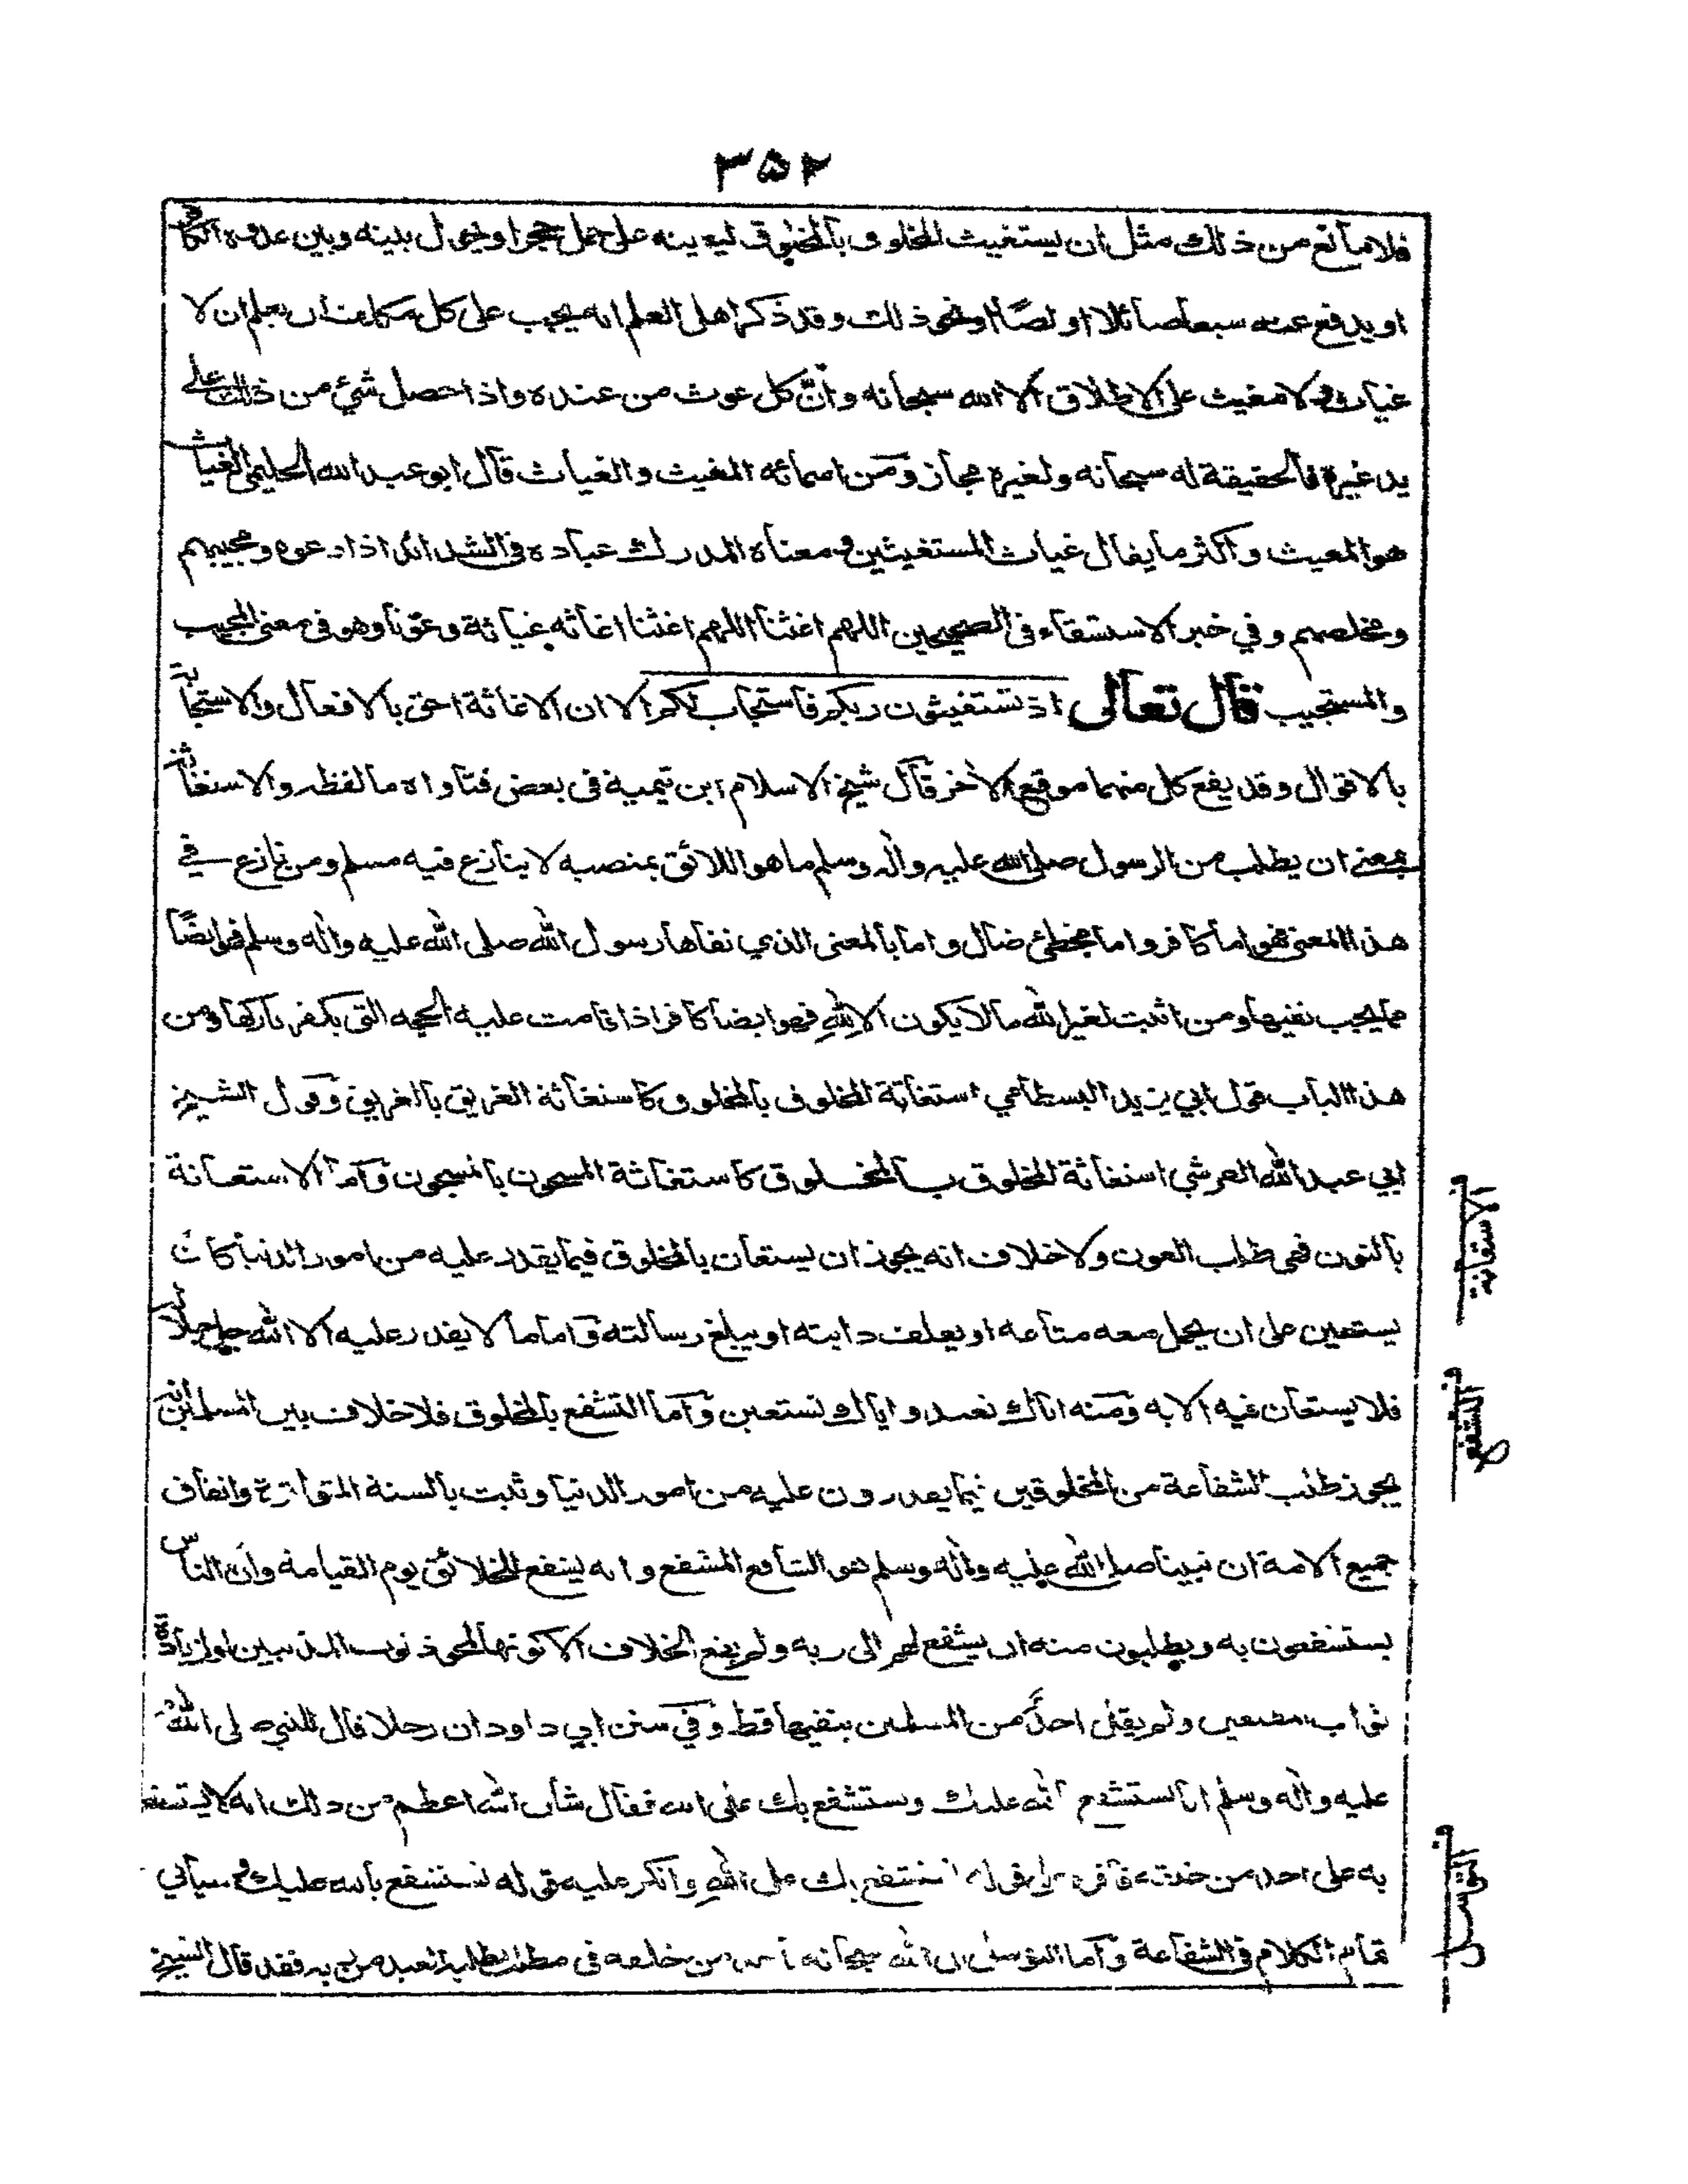 ٣٥٢
فلا مانع من ذلك مثل ان يستغيث المخلوق بالمخلوق ليعينه على حمل حجر او يحول بينه وبين عدوه الكافر
او يدفع عنه سبعا صائلا او لصًا او نحو ذلك وقد ذكر اهل العلم انه يجب على كل مكلف ان يعلم ان لا
غياث ولا مغيث على الاطلاق الا الله سبحانه وانّ كل غوث من عنده واذا حصل شئ من ذلك على
يد غيره فالحقيقة له سبحانه ولغيره مجاز ومن اسمائه المغيث والغياث قال ابو عبد الله الحليمى الغياث
هو المغيث واكثر ما يقال غياث المستغيثين ومعناه المدرك عباده فى الشدائد اذا دعوه ومجيبهم
ومخلصهم وفي خبر الاستسقاء فى الصحيحين اللهم اغثنا اللهم اغثنا اغاثه غياثة وغوثا وهو فى معنى المجيب
والمستجيب قال تعالى اذ تستغيثون ربكم فاستجاب لكم الا ان الاغاثة احق بالافعال والاستجابة
بالاقوال وقد يقع كل منهما موقع الاخر قال شيخ الاسلام ابن تيمية فى بعض فتاواه ما لفظه والاستغاثة
بمعنى ان يطلب من الرسول صلى الله عليه واله وسلم ما هو اللائق بمنصبه لا ينازع فيه مسلم ومن نازع في
هذا المعنى فهو اما كافر واما مخطئ ضال واما بالمعنى الذي نفاها رسول الله صلى الله عليه واله وسلم فهو ايضًا
مما يجب نفيها ومن اثبت لغير الله ما لا يكون الا لله فهو ايضا كافر اذا قامت عليه الحجه التى يكفر تاركها ومن
هذا الباب قول ابي يزيد البسطامي استغاثة المخلوق بالمخلوق كاستغاثة الغريق بالغريق وقول الشيخ
ابي عبد الله القرشي استغاثة المخلوق بالمخلوق كاستغاثة المسجون بالمسجون واما الاستعانة
بالنون فهى طلب العون ولا خلاف انه يجوز ان يستعان بالمخلوق فيما يقدر عليه من امور الدنيا كان
يستعين على ان يحمل معه متاعه او يعلف دابته او يبلغ رسالته واما ما لا يقدر عليه الا الله جل جلاله
فلا يستعان فيه الا به ومنه اياك نعبد واياك نستعين واما التشفع بالمخلوق فلا خلاف بين المسلمين انه
يجوز طلب الشفاعة من المخلوقين فيما يقدرون عليه من امور الدنيا وثبت بالسنة المتواترة واتفاق
جميع الامة ان نبينا صلى الله عليه واله وسلم هو الشافع المشفع وانه يشفع للخلائق يوم القيامة وان الناس
يستشفعون به ويطلبون منه ان يشفع لهم الى ربه ولم يقع الخلاف الا كونها لمحو ذنوب المذنبين او لزيادة
ثواب المطيعين ولم يقل احدٌ من المسلمين بنفيها قط وفي سنن ابي داود ان رجلا قال للنبي صلى الله
عليه واله وسلم انا نستشفع بالله عليك ونستشفع بك على الله فقال شان الله اعظم من ذلك انه لا يستشفع
به على احد من خلقه فاقره على قوله نستشفع بك على الله وانكر عليه قوله نستشفع بالله عليك وسياتي
تمام الكلام فى الشفاعة واما التوسل الى الله سبحانه باحد من خلقه فى مطلب يطلبه العبد من ربه فقد قال الشيخ